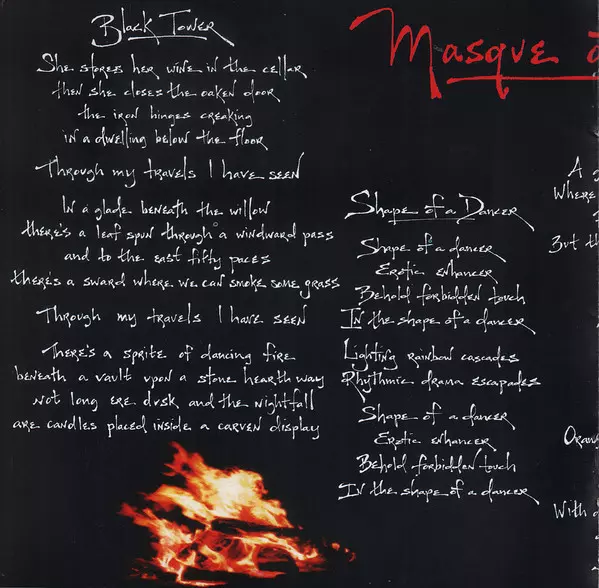 Black Tower
She stores her wine in the cellar
then she closes the oaken door
the iron hinges creaking
in a dwelling below the floor
Through my travels I have seen
In a glade beneath the willow
there's a leaf spun through a windward pass
and to the east fifty paces
there's a sward where we can smoke some grass
Through my travels I have seen
There's a sprite of dancing fire
beneath a vault upon a stone hearth way
not long ere dusk and the nightfall
are candles placed inside a carven display
Masque
Shape of a Dancer
Shape of a dancer
Erotic enhancer
Behold forbidden touch
In the shape of a dancer
Lighting rainbow cascades
Rhythmic drama escapades
Shape of a dancer
Erotic enhancer
Behold forbidden touch
In the shape of a dancer
A
Where
But th
Oran
With